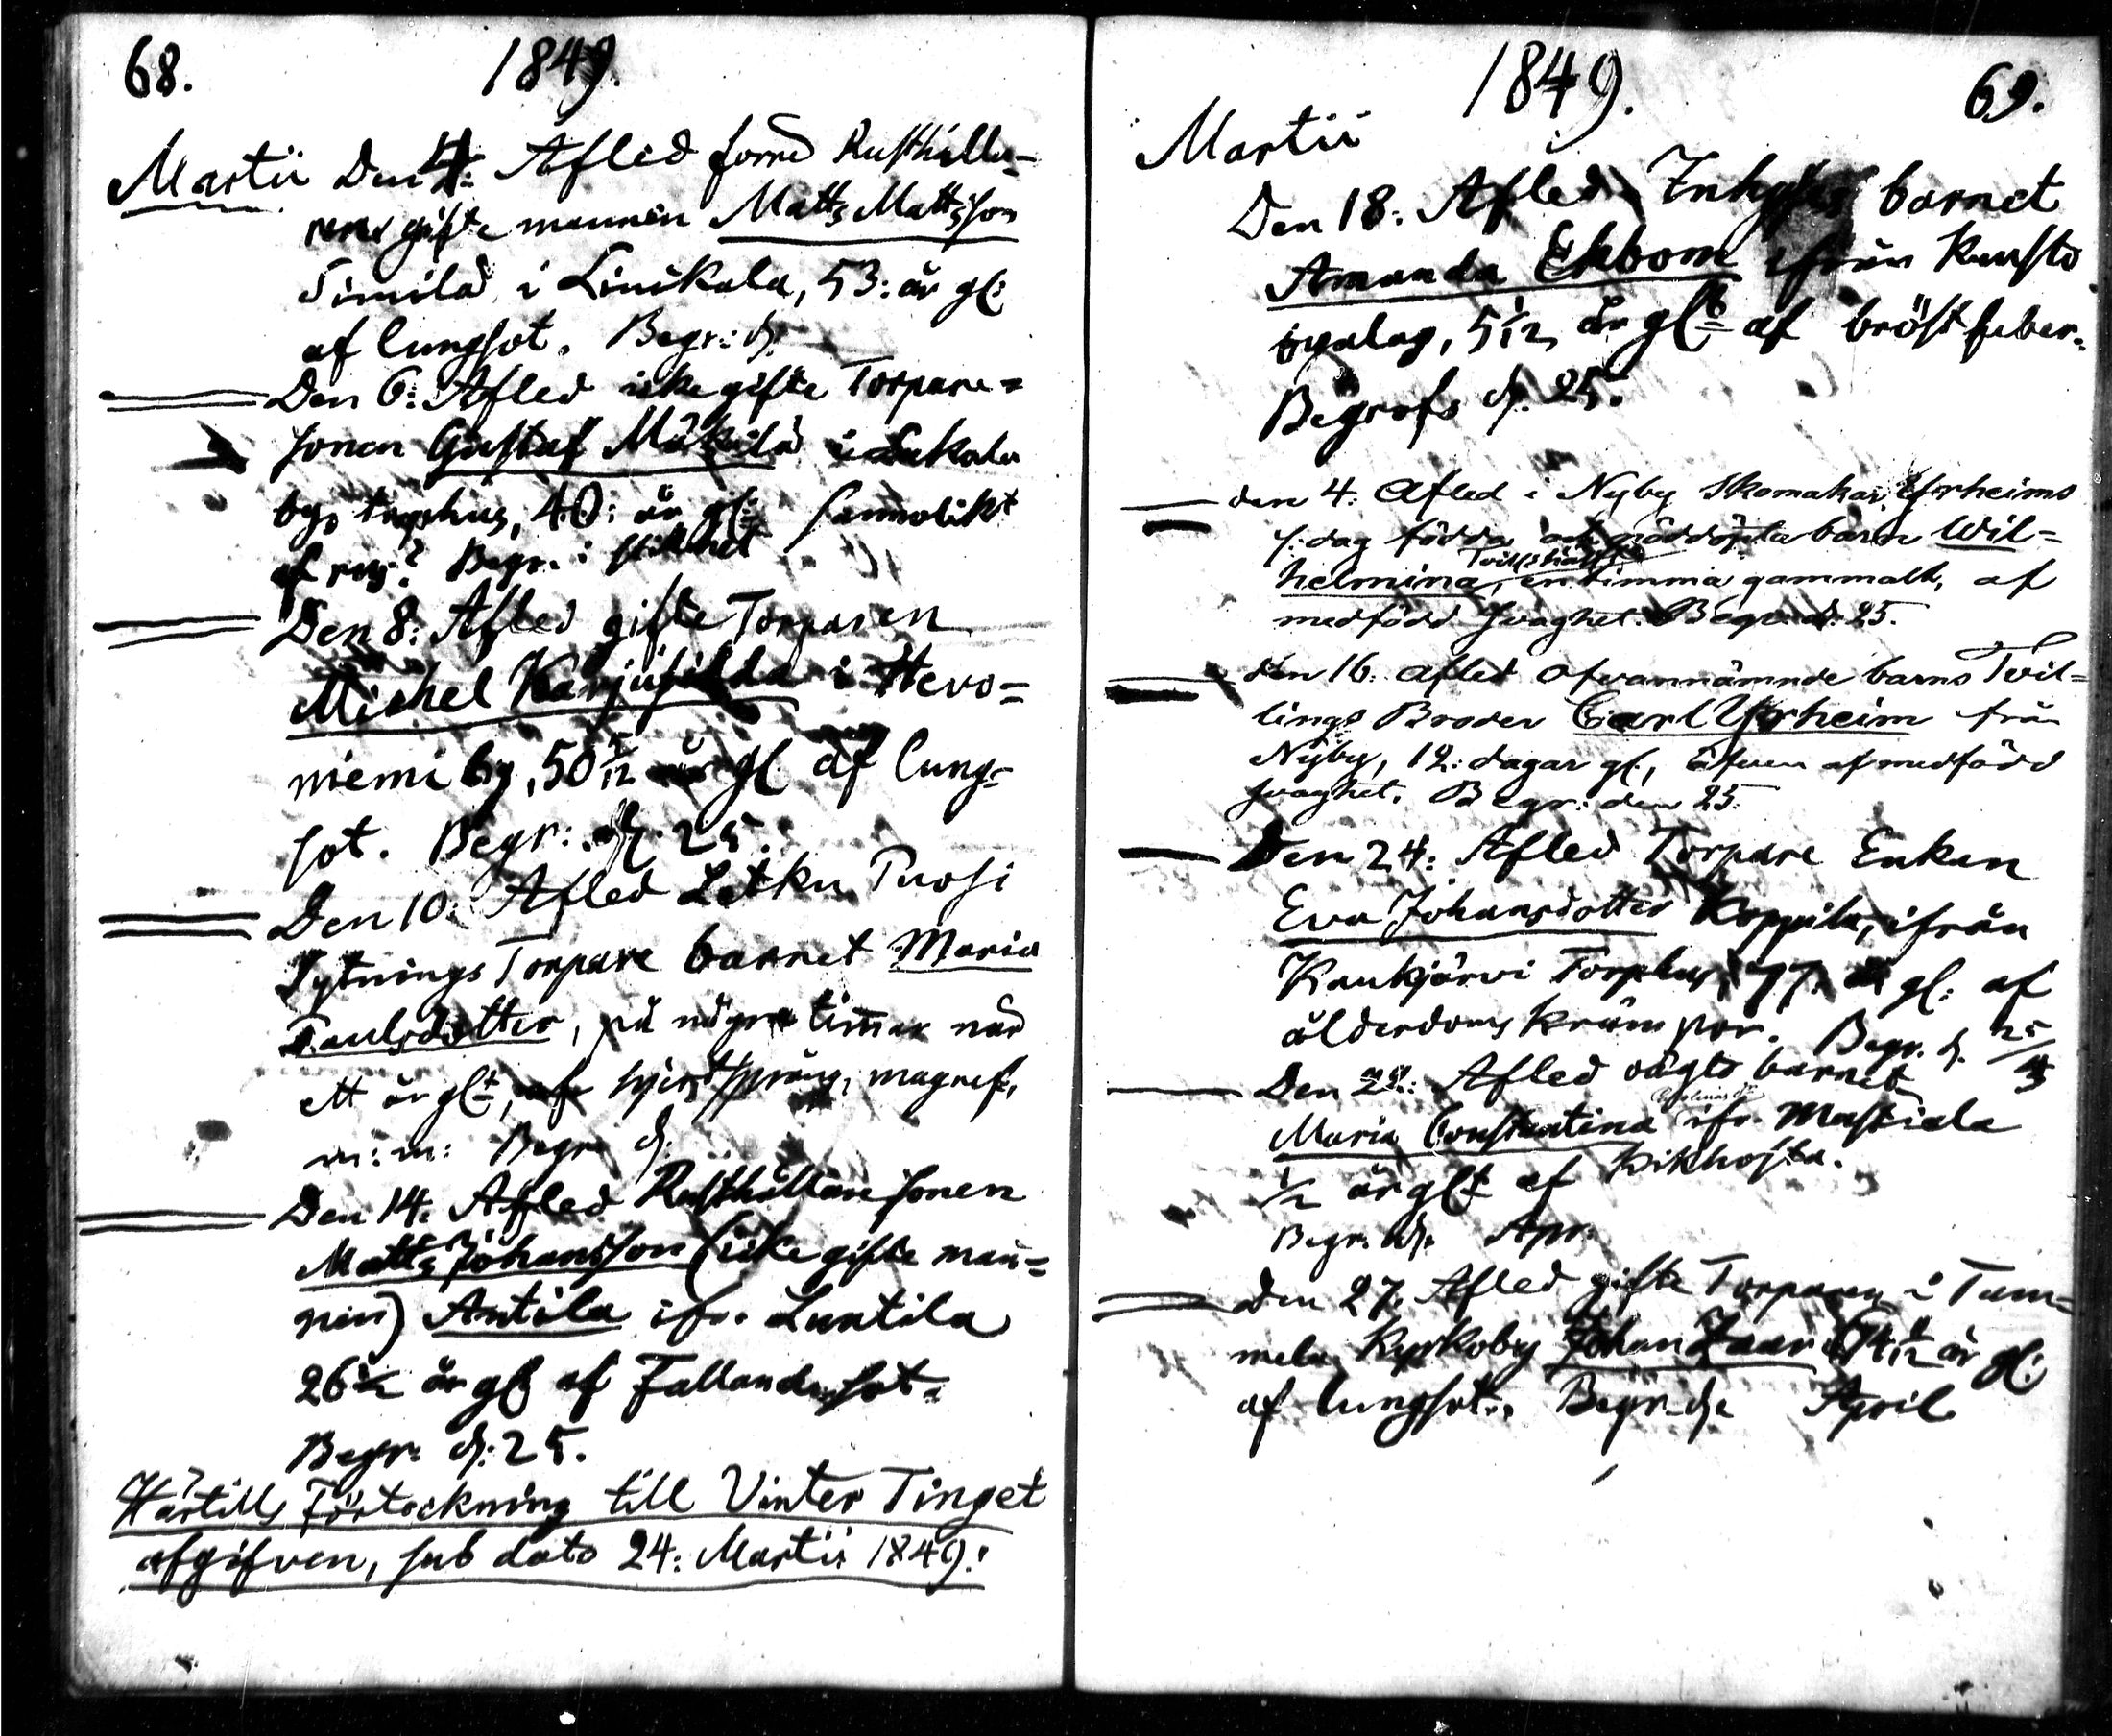 68. 1849.
Martii Den 4: Afled förre Rusthålla-
rens gifte mannen Matts Mattsson
Simila i Linikala, 53: år gl:
af lungsot. Begr: d:
Den 6: Afled icke gifte Torpare=
sonen Gustaf Mäkilä i Lukala
bys torphus, 40: år gl: sannolikt
af rus? Begr. i stillhet
Den 8: Afled gifte Torparen
Michel Karjusilda i Hevo=
niemi by, 50 år gl. af lung=
sot. Begr: d: 25.
Den 10: Afled Letku Puosi
Sytnings Torpare barnet Maria
Paulsdotter, på några timmar när
ett år glt, af hjertsprång, magref,
m: m: Begr d:
Den 14. Afled Rusthållare sonen
Matts Johansson (icke gifte man=
nen) Antila ifr. Luntila
26 1/2 år gl af Fallandesot.
Begr. d: 25.
Härtills Förteckning till Vinter Tinget
afgifven, sub dato 24: Martii 1849!
1849. 69.
Martii
Den 18: Afled Inhyses barnet
Amanda Ekbom ifrån Kuusto
byalag, 5 1/12 år glt af bröstfeber.
Begrofs d: 25.
den 4. Afled i Nyby Skomakar Yrheims
s: dag födda och nöddöpta barn Wil=
helmina, en timma gammalt, af
medfödd svaghet. Begr. d. 25.
den 16. afled ofvannämnde barns Tvil=
lings Broder Carl Yrheim från
Nyby, 12: dagar gl., äfven af medfödd
svaghet. Begr: den 25.
Den 24: Afled Torpare Enkan
Eva Johansdotter Koppila, ifrån
Kaukjärvi Torphus, 77: år gl: af
ålderdoms krämpor. Begr. d. 25/3
Den 25: Afled oägta barnet
Maria Constantina ifr. Mustiala
1/2 år glt af Kikhosta.
Begr. d: Apr:
Den 27. Afled gifte Torparen i Tam=
mela Kyrkoby Johan Laur 64 år gl:
af lungsot. Begr. d: April